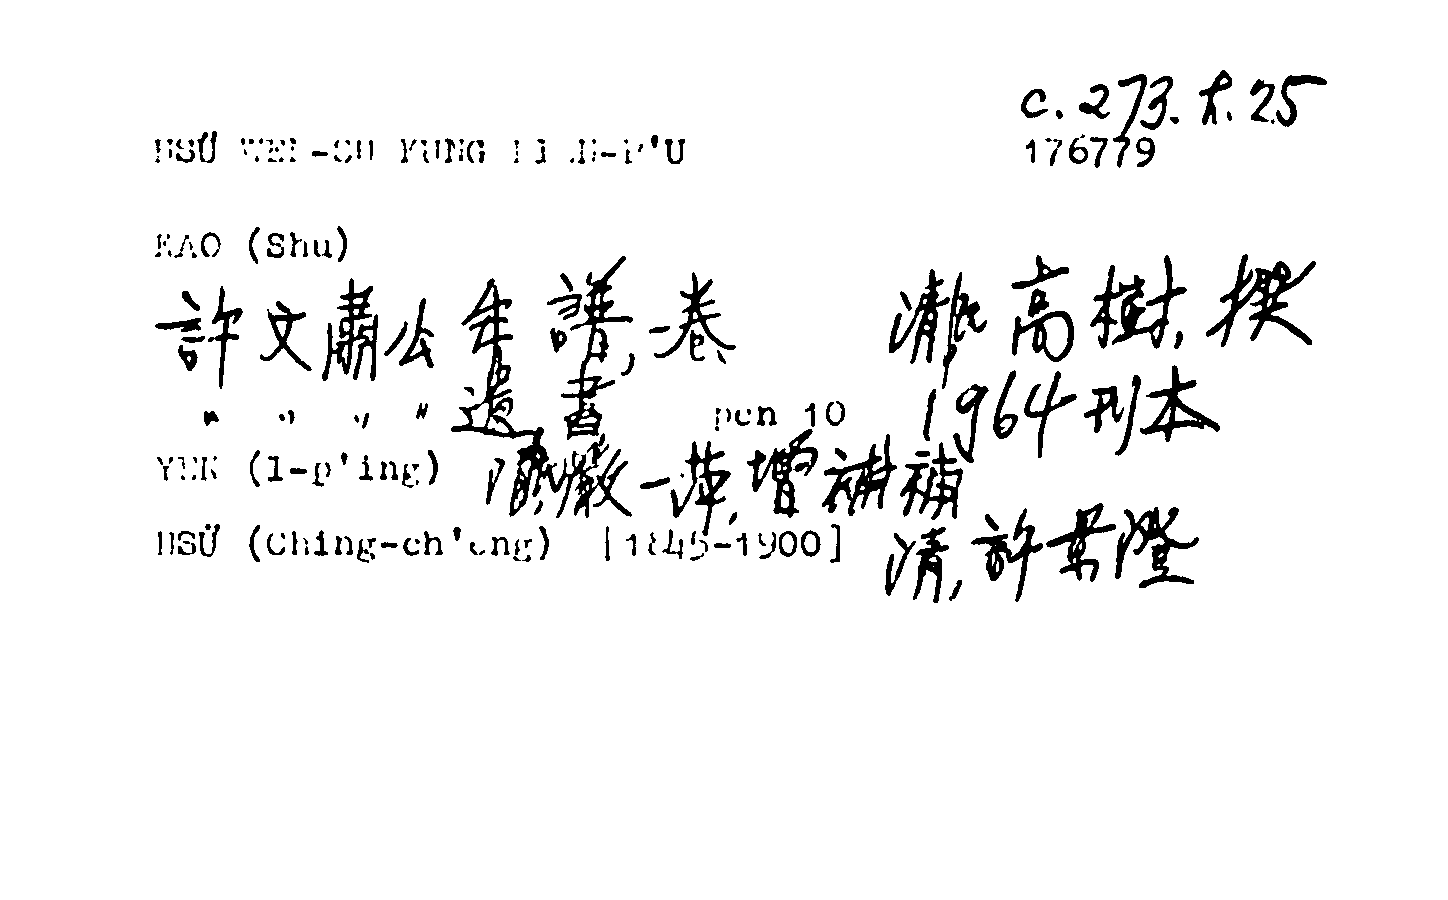 c.273.t.25
HSÜ WEN-SU KUNG NIEN-P'U 176779
KAO (Shu)
許文肅公年譜,一卷、 清,高樹,撰
" " " " 遺書 pen 10 1964刊本
YEN (I-p'ing) 嚴一萍,增補
HSÜ (Ching-ch'eng) [1845-1900] 清,許景澄